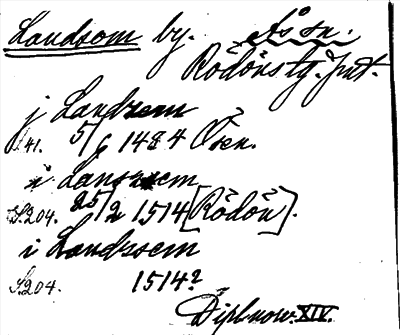 Landsom by. Ås sn.
Rödöns tg. Jmt.
j Landzem
141. 5/6 1484 Ösen.
i Lanssem
S.204. 25/2 1514 [Rödön].
i Landssem
S.204. 1514?
Dipl. now. XIV.